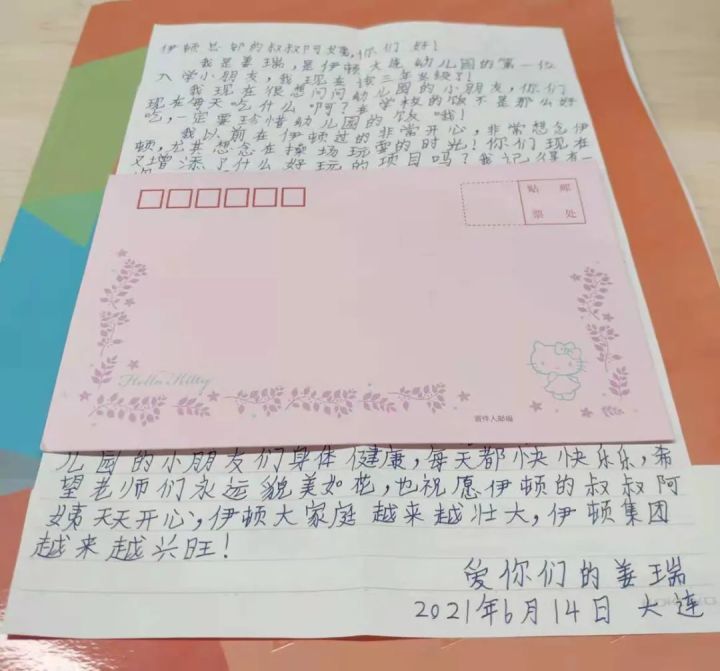 伊顿总部的叔叔阿姨,你们好!
我是姜瑞,是伊顿大连幼儿园的第一位
入学小朋友,我现在读三年级了!
我现在很想问问幼儿园的小朋友,你们
现在每天吃什么啊?在学校的饭不是那么好
吃,一定要珍惜幼儿园的饭哦!
我以前在伊顿过的非常开心,非常想念伊
顿,尤其想念在操场玩耍的时光!你们现在
又增添了什么好玩的项目吗?我记得有一
贴 邮
票 处
Hello Kitty
寄件人邮编
儿园的小朋友们身体健康,每天都快快乐乐,希
望老师们永远貌美如花,也祝愿伊顿的叔叔阿
姨天天开心,伊顿大家庭越来越壮大,伊顿集团
越来越兴旺!
爱你们的姜瑞
2021年6月14日 大连